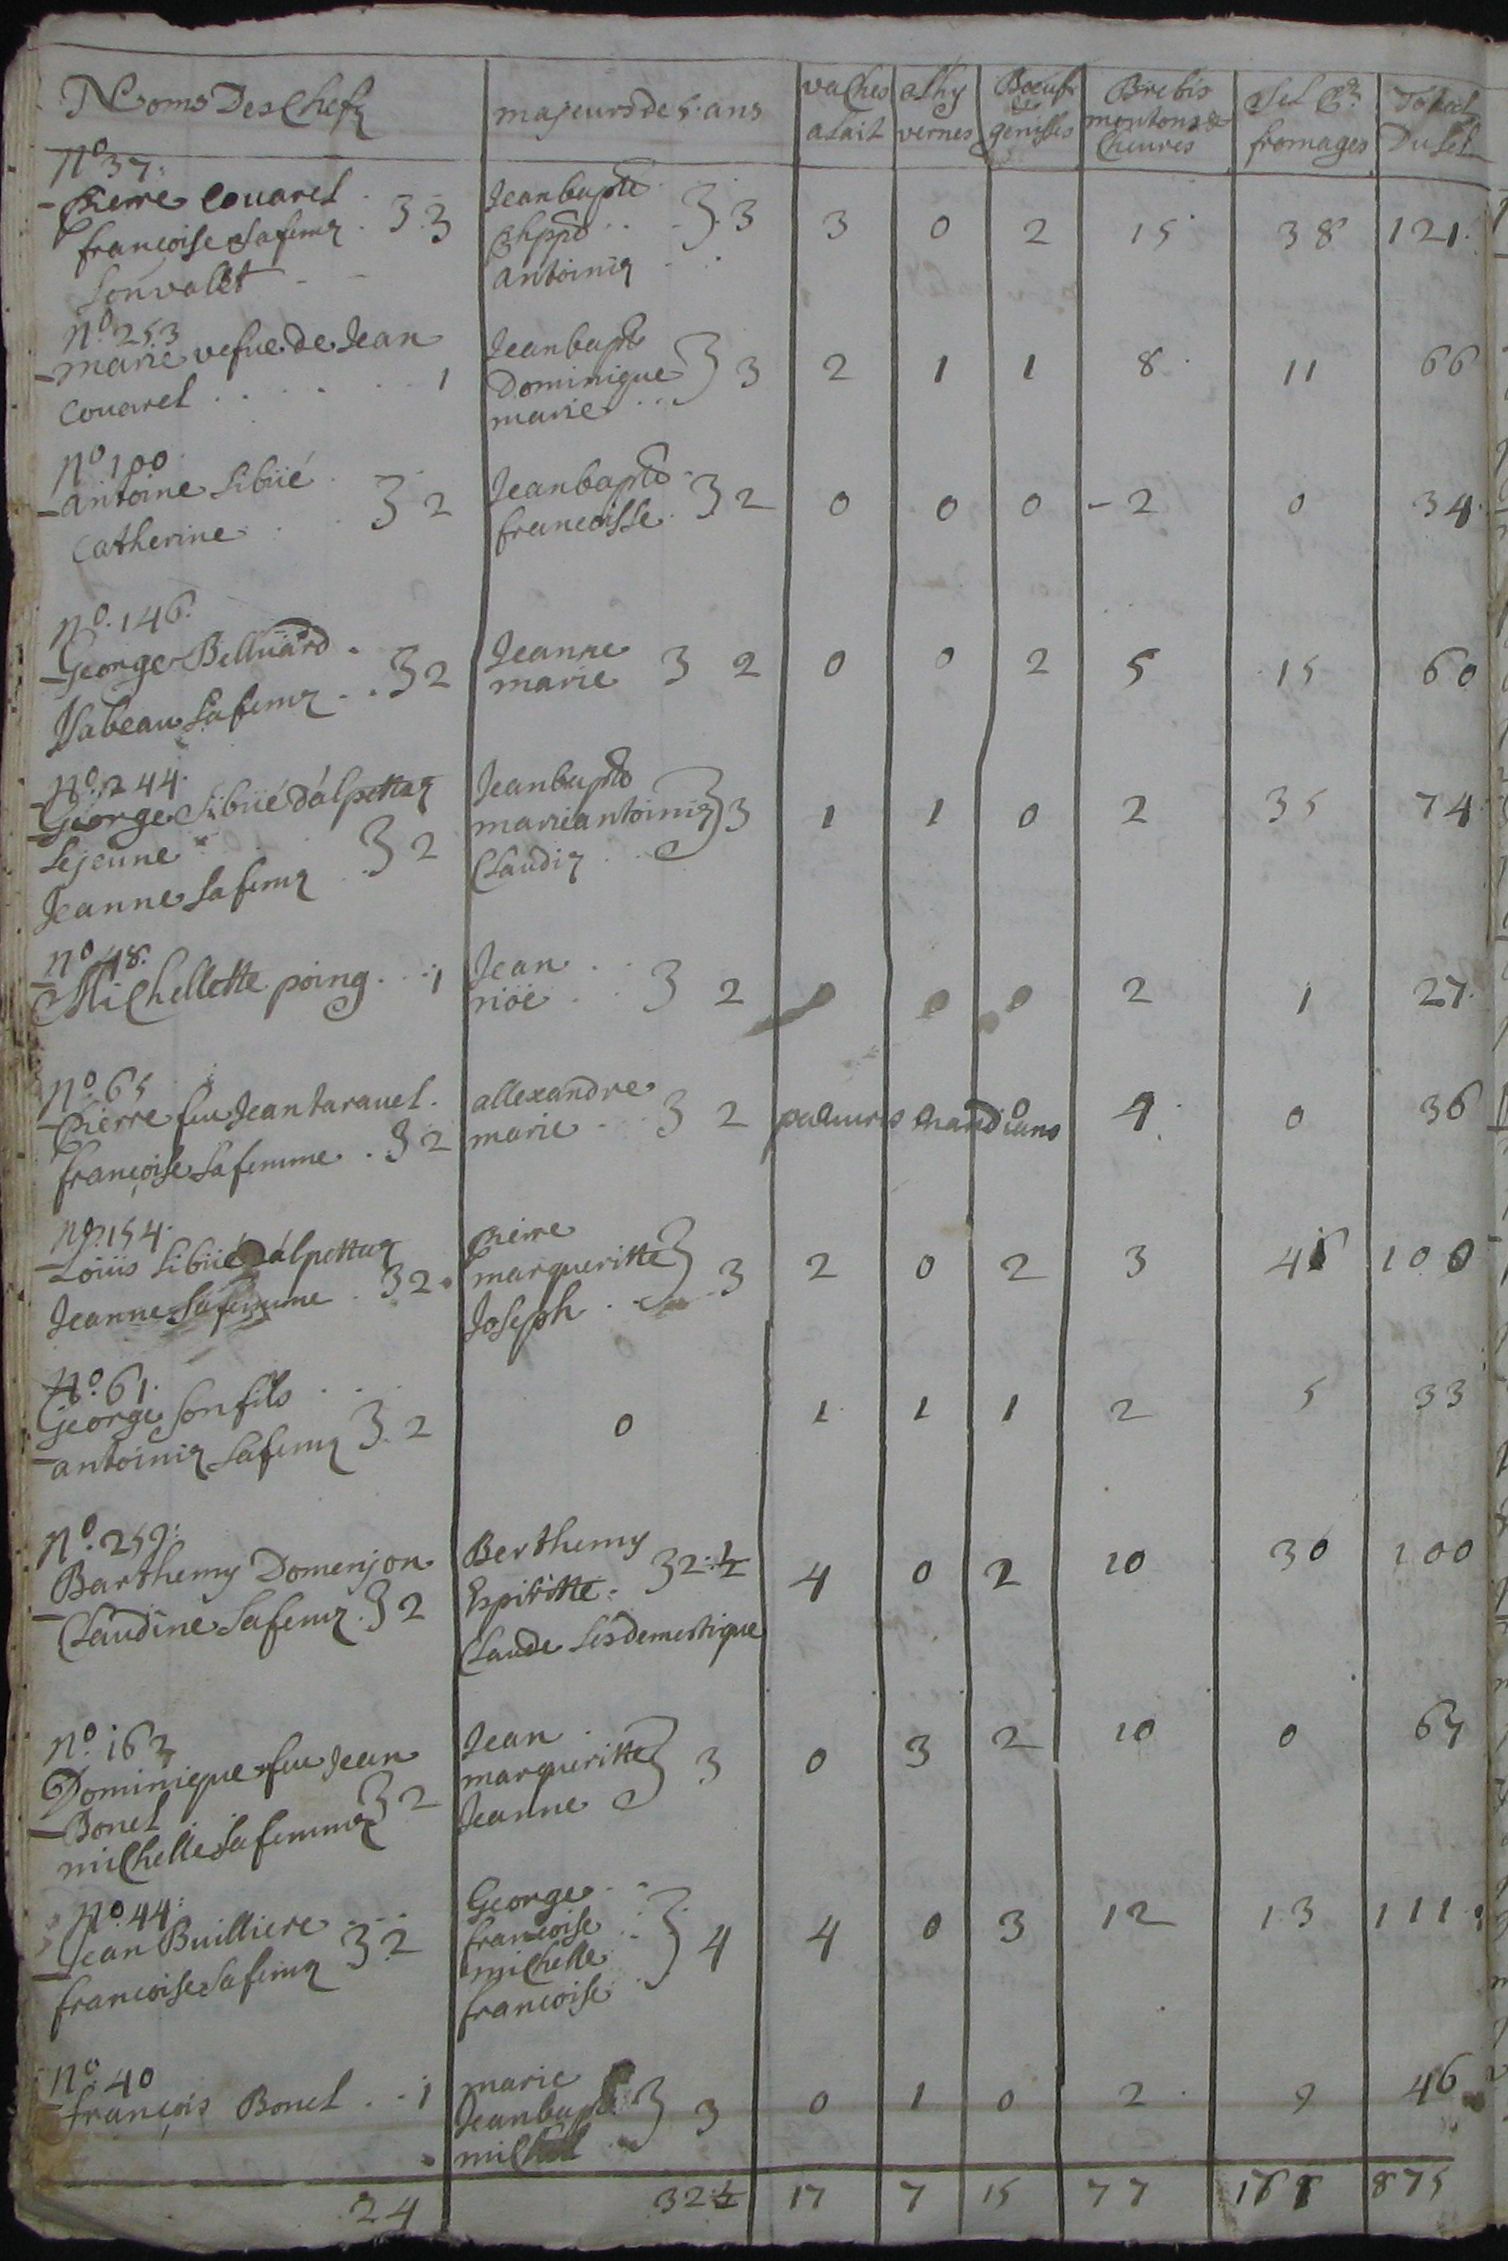 Noms Des Chefz | majeurs de 5 ans | vaches alait | athy vernes | Bœufs et genisses | Brebis moutons & Cheures | Sel Pr fromages | Total Du Sel
No 37:
Pierre Couarel
françoise Safemz 3.3 | Jeanbapte phppe antoiniz 3.3 | 3 | 0 | 2 | 15 | 38 | 121
Sonvallet
No 253
Marie vefue de Jean
Couarel 1 | Jeanbapte Dominique marie 3 | 2 | 1 | 1 | 8 | 11 | 66
No 100
antoine Sibüé
Catherine 3 2 | Jeanbapte francoisse 3 2 | 0 | 0 | 0 | 2 | 0 | 34
No. 146.
George Belluard
Isabeau Safemz 3 2 | Jeanne marie 3 2 | 0 | 0 | 2 | 5 | 15 | 60
No. 244.
George Sibüé d'alpettaz
Lejeune
Jeanne Safemz 3 2 | Jeanbapte marieantoiniz Claudiz 3 | 1 | 1 | 0 | 2 | 35 | 74
No 48.
Michellette poing 1 | Jean nöe 3 2 | 0 | 0 | 0 | 2 | 1 | 27
No. 65
Pierre feu Jean taravel
françoise Safemme 3 2 | allexandre marie 3 2 | pauures mandians | 4 | 0 | 36
No. 154.
Loüis Sibüé d'alpettaz
Jeanne Safemme 3 2 | Pierre margueritte Joseph 3 | 2 | 0 | 2 | 3 | 46 | 100
No. 61.
George Son fils
antoiniz Safemz 3 2 | 0 | 1 | 1 | 1 | 2 | 5 | 33
No. 259:
Barthemy Domenjon
Claudine Safemz 3 2 | Berthemy Espiritte 3 2:½ Claude Ses demestique | 4 | 0 | 2 | 10 | 30 | 100
No. 163
Dominique feu Jean
Bonel
michelle Safemmz 3 2 | Jean margueritte Jeanne 3 | 0 | 3 | 2 | 10 | 0 | 67
No. 44:
Jean Buillierre
francoise Safemz 3 2 | George francoise michelle francoise 4 | 4 | 0 | 3 | 12 | 13 | 111
No. 40
françois Bonel 1 | marie Jeanbapte michel 3 | 0 | 1 | 0 | 2 | 9 | 46
24 | 32 ½ | 17 | 7 | 15 | 77 | 875